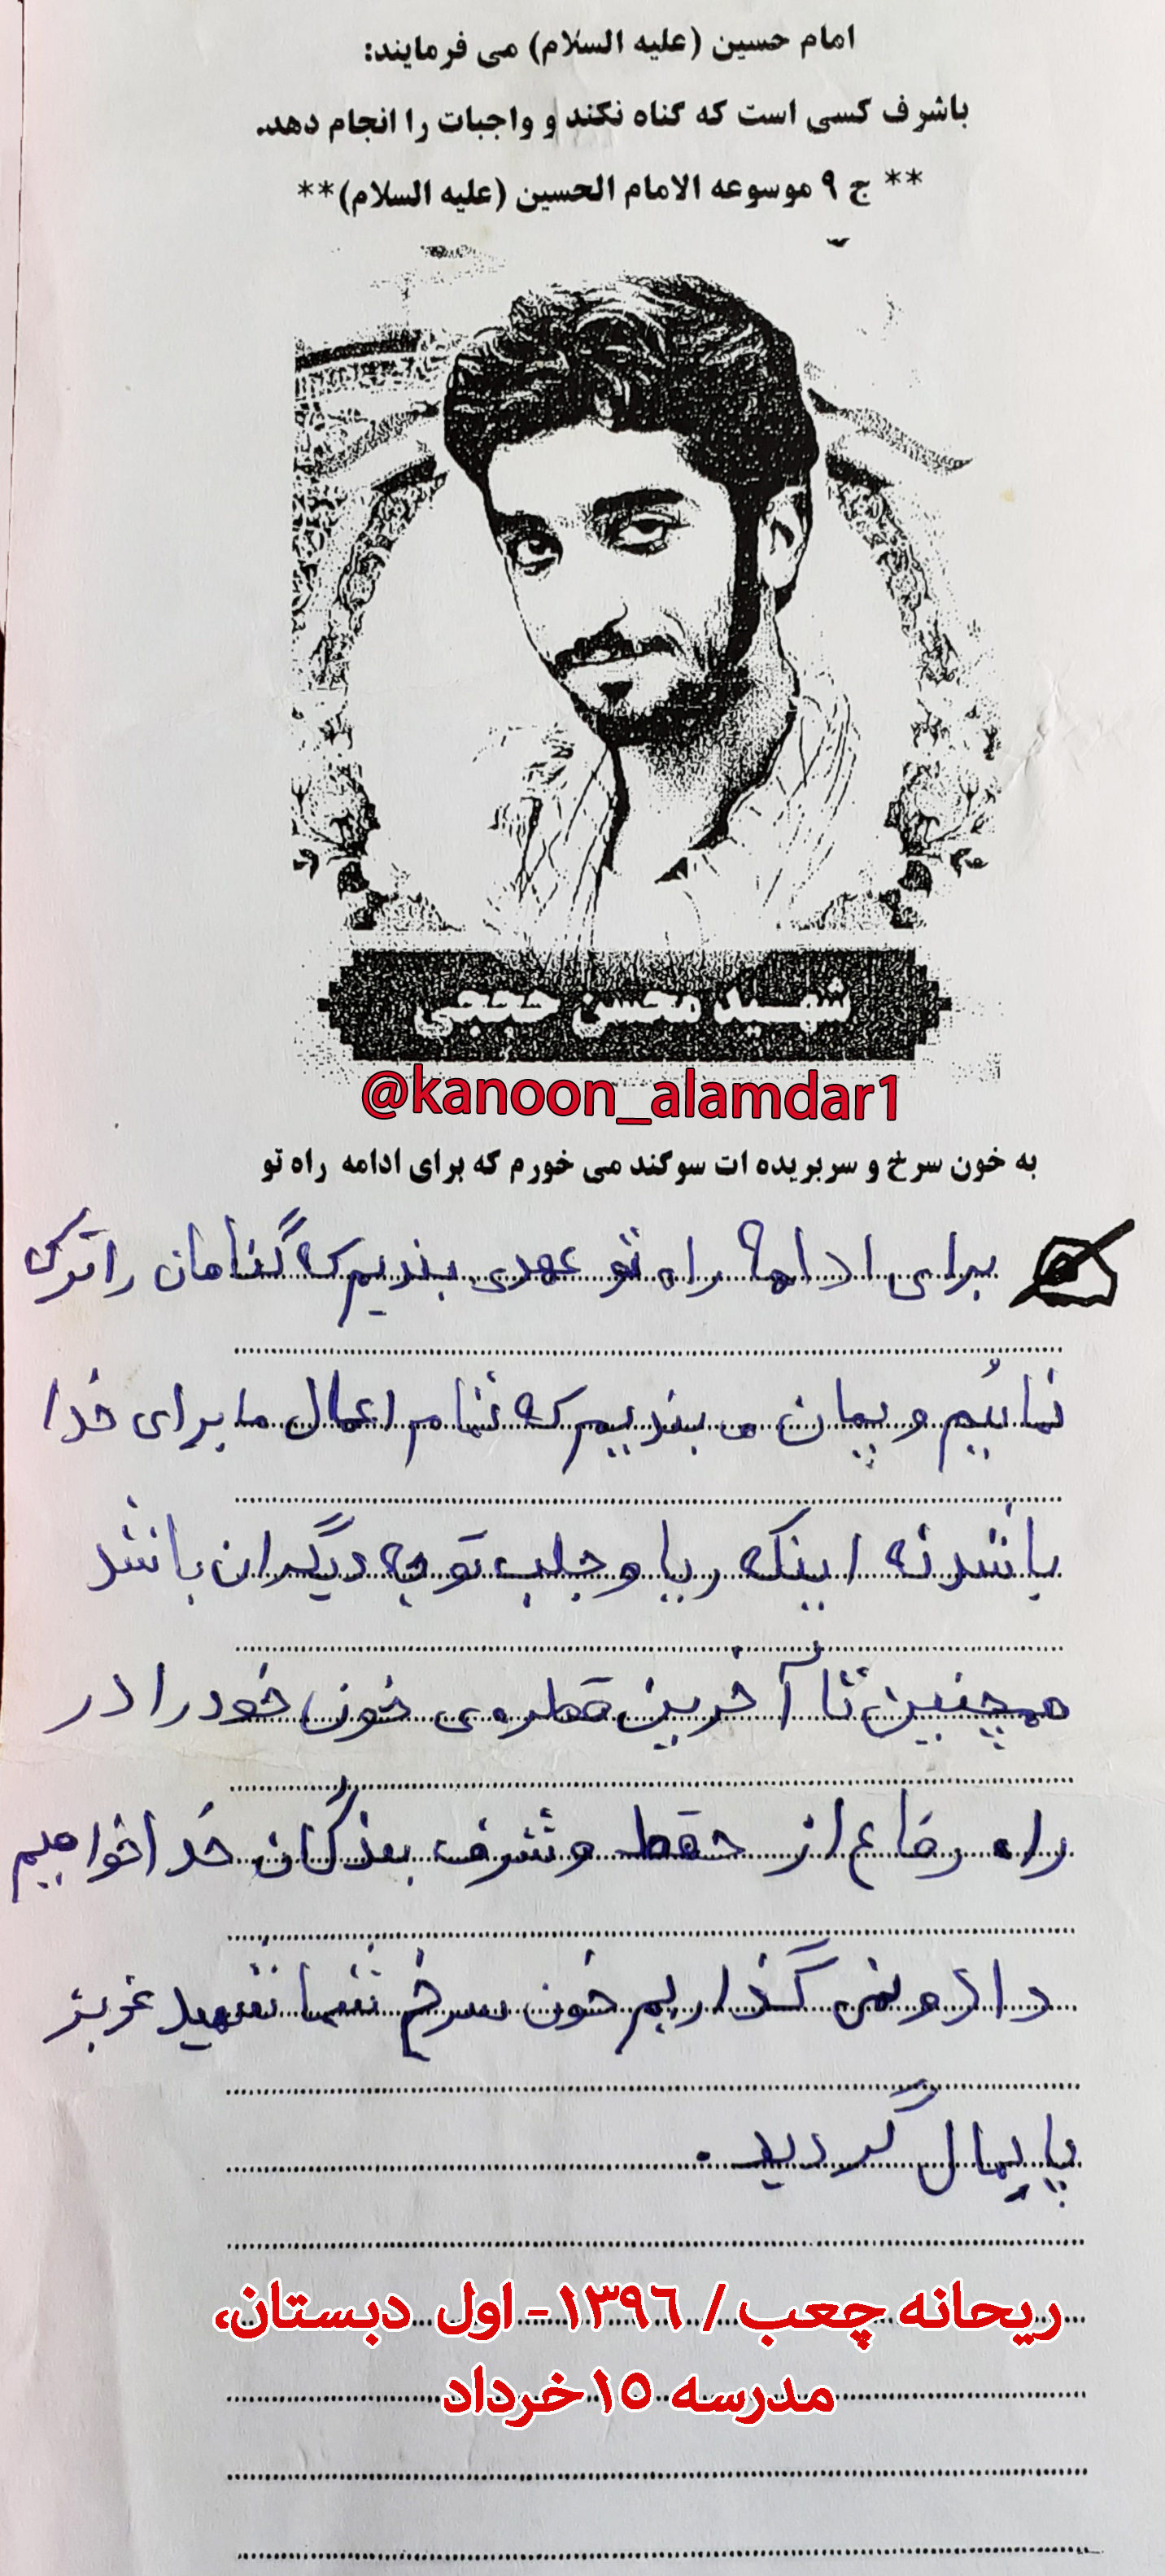 امام حسین (علیه السلام) می فرمایند:
باشرف کسی است که گناه نکند و واجبات را انجام دهد.
** ج ۹ موسوعه الامام الحسین (علیه السلام)**
شهید محسن حججی
@kanoon_alamdar1
به خون سرخ و سربریده ات سوگند می خورم که برای ادامه راه تو
برای ادامه راه تو عهدی بندیم که گناهان را ترک
نمائیم و پیمان می بندییم که تمام اعمال ما برای خدا
باشد نه اینکه ریا و جلب توجه دیگران باشد
همچنین تا آخرین قطره ی خون خود را در
راه دفاع از حفظ و شرف بندگان خدا خواهیم
داد و نمی گذاریم خون سرخ شما شهید عزیز
پایمال گردید.
ریحانه چعب / ۱۳۹۶ - اول دبستان،
مدرسه ۱۵ خرداد